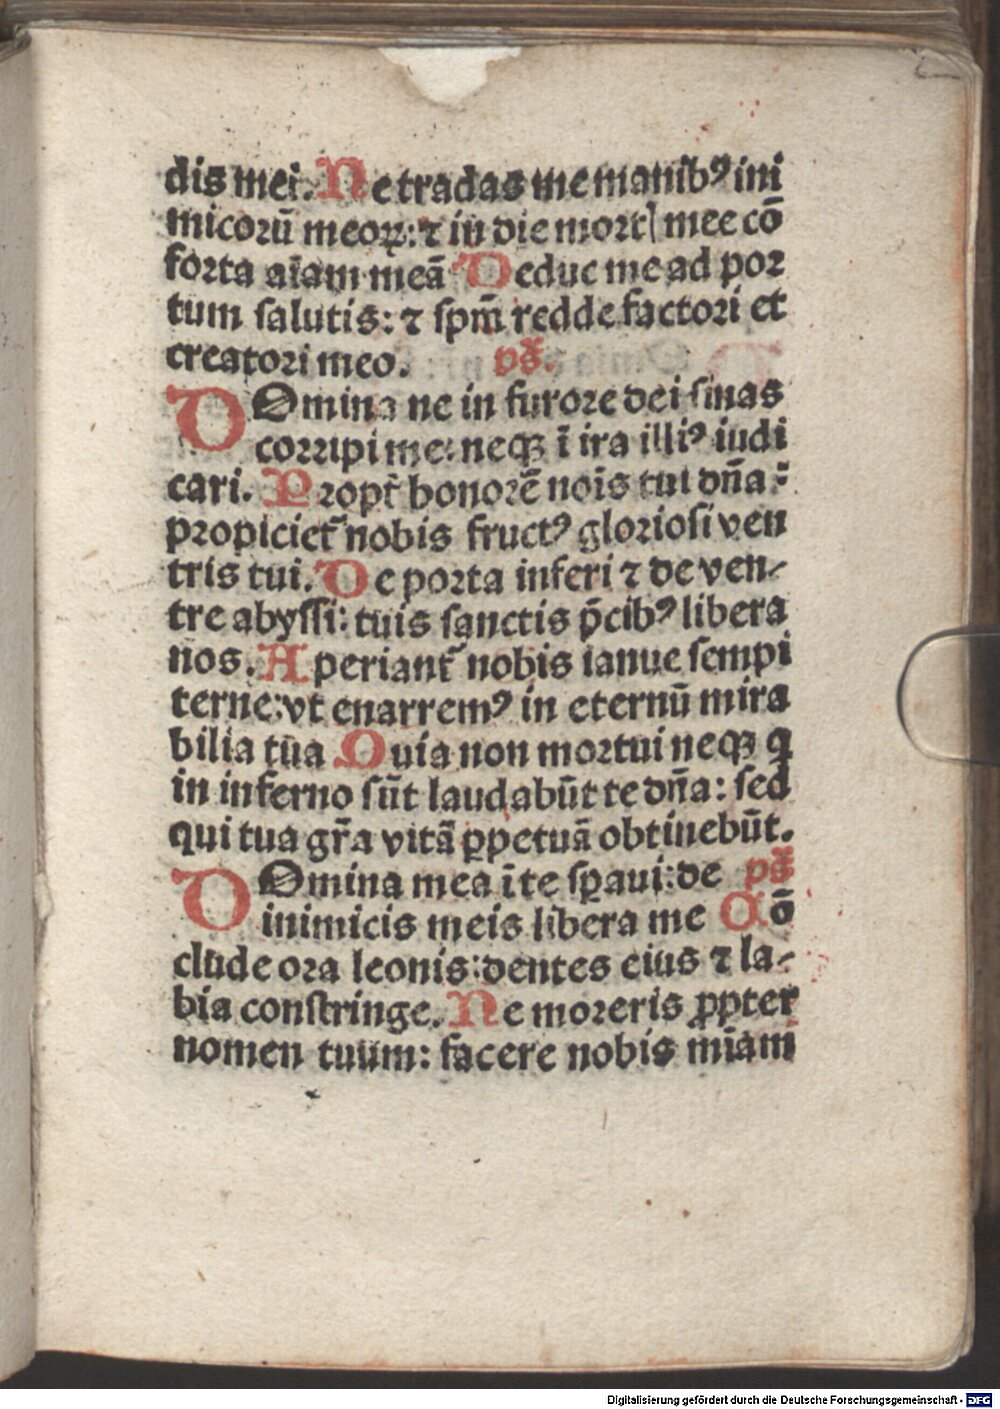 dis mei. Ne tradas me manibꝰ ini
micorū meoꝝ: ⁊ in die mortꝭ mee cō
forta aīam meā Deduc me ad por
tum salutis: ⁊ spm̄ redde factori et
creatori meo. ps̄.
DOmina ne in furore dei sinas
corripi me: neqꝫ ī ira illiꝰ iudi
cari. Propt̄ honorē noīs tui dn̄a:
propiciet᷑ nobis fructꝰ gloriosi ven
tris tui. De porta inferi ⁊ de ven-
tre abyssi: tuis sanctis p̄cibꝰ libera
nos. Aperiant᷑ nobis ianue sempi
terne: vt enarremꝰ in eternū mira
bilia tua Quia non mortui neqꝫ q
in inferno sūt laudabūt te dn̄a: sed
qui tua gr̄a vitā ꝑpetuā obtinebūt.
DOmina mea ī te sꝑaui: de ps̄
inimicis meis libera me Cō
clude ora leonis: dentes eius ⁊ la-
bia constringe. Ne moreris ꝓpter
nomen tuum: facere nobis mīam
Digitalisierung gefördert durch die Deutsche Forschungsgemeinschaft - DFG